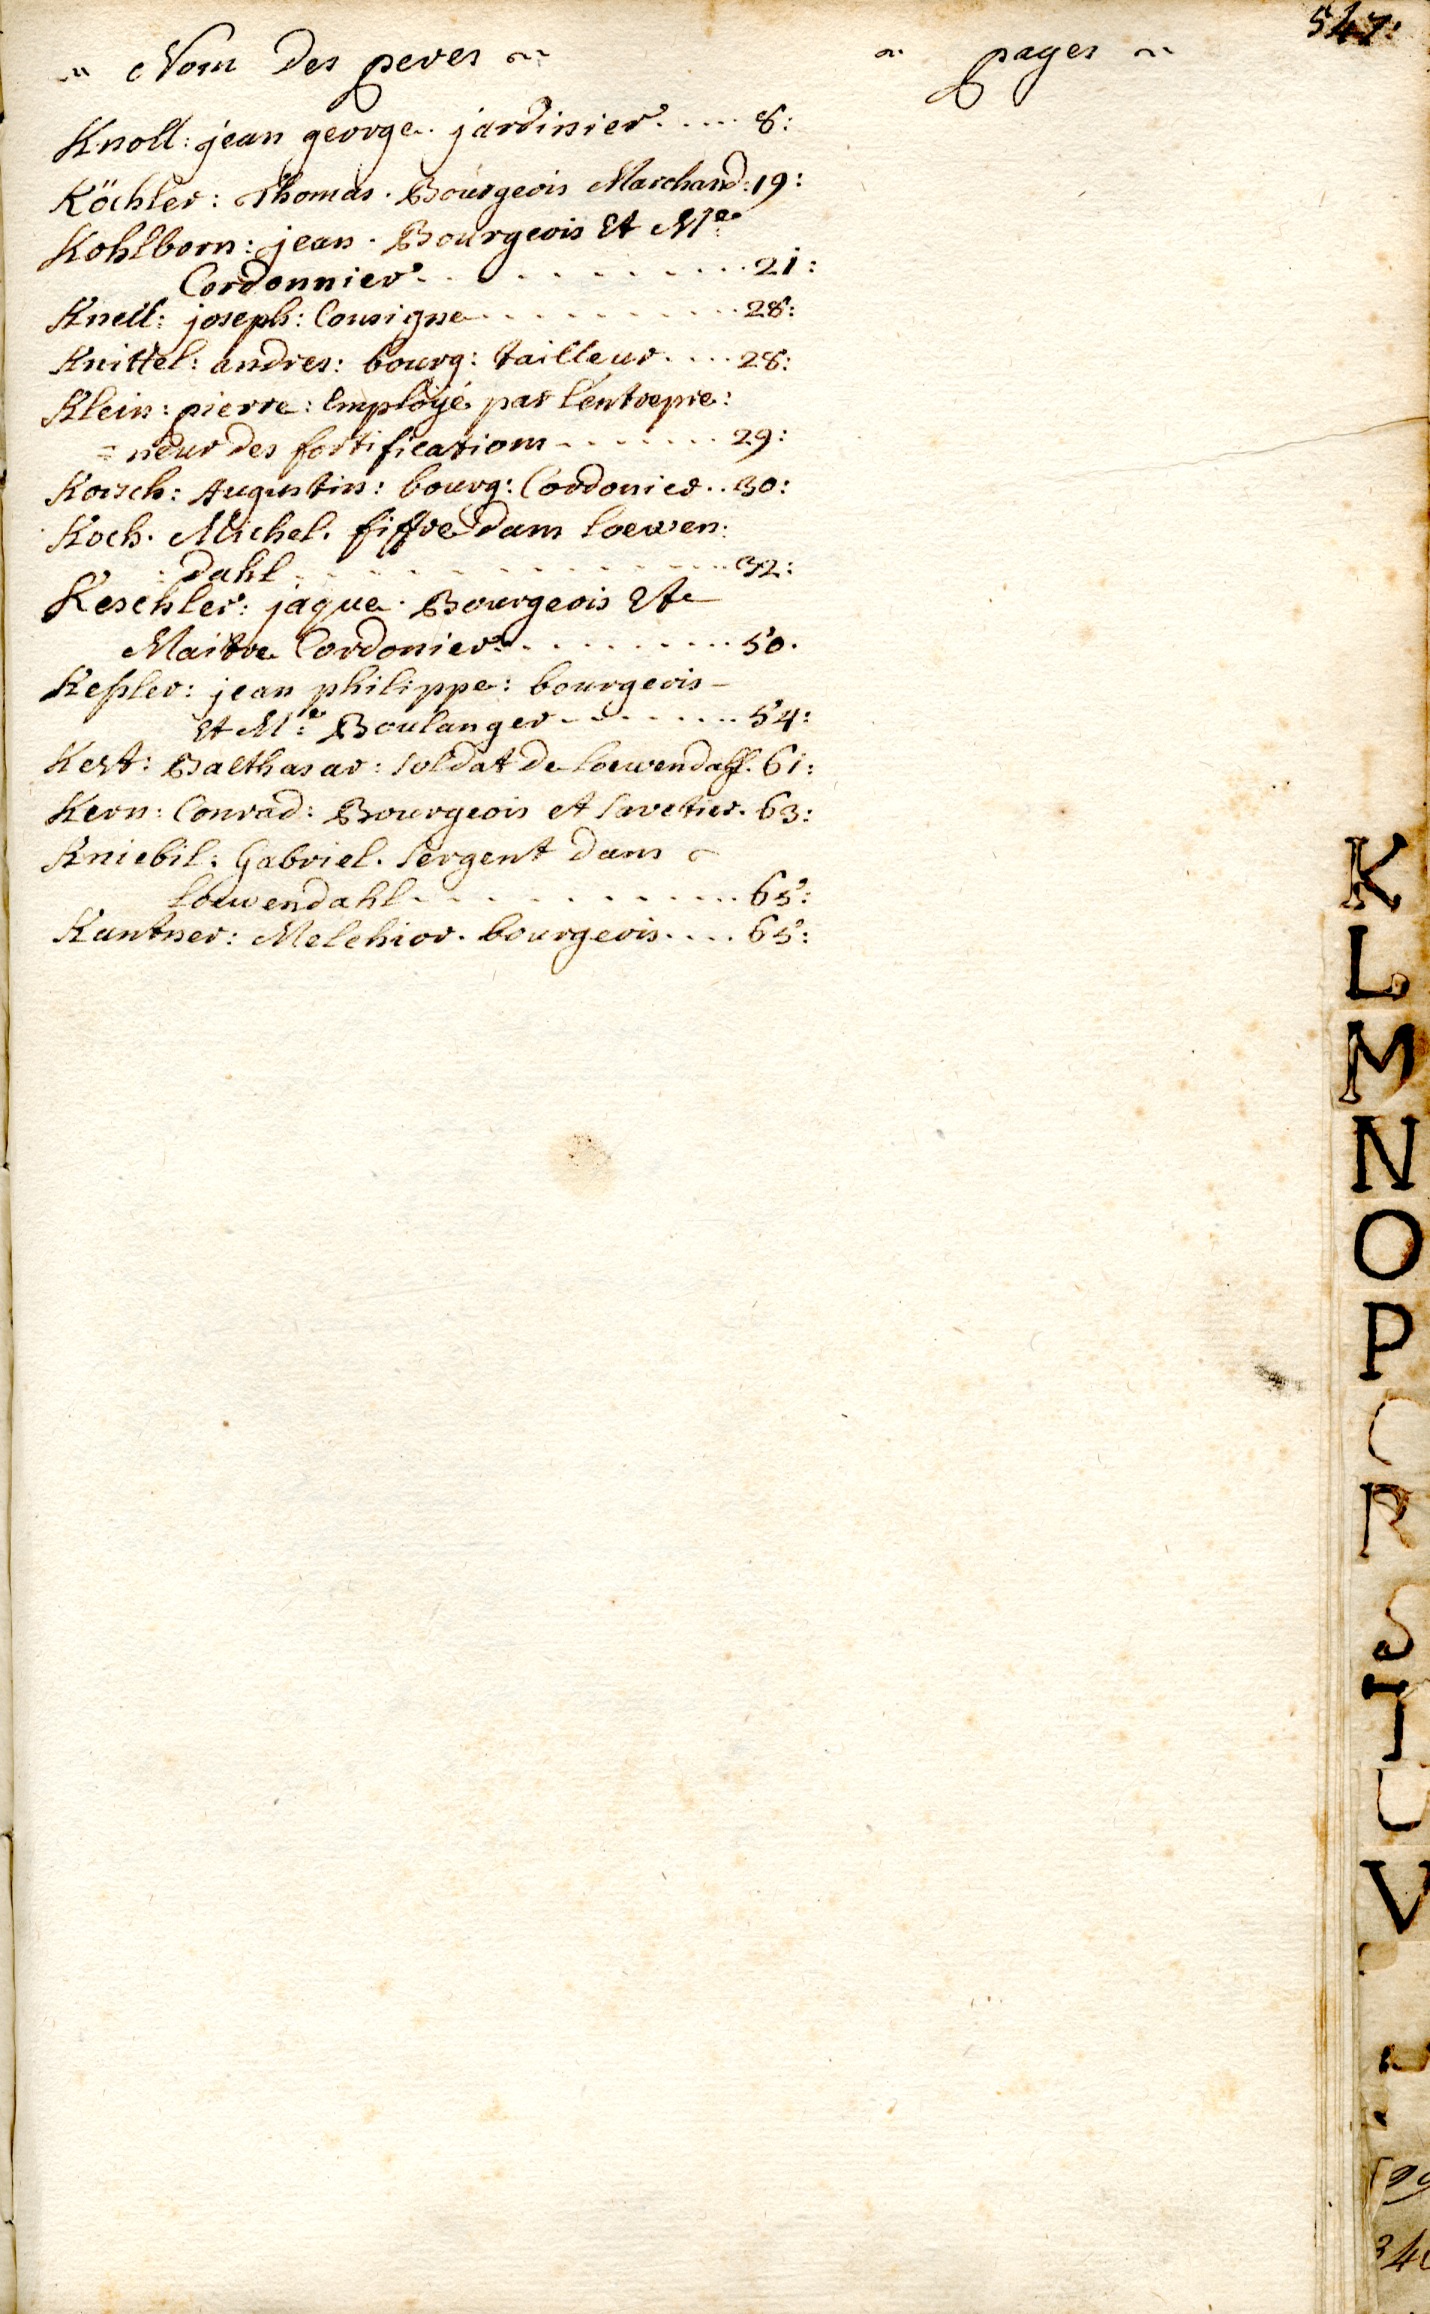 547:
~ Nom des peres ~ ~ pages ~
Knoll: jean george. jardinier..... 8:
Köchler: Thomas. Bourgeois Marchand: 19:
Kohlborn: jean. Bourgeois Et Me
Cordonnier.......... 21:
Knell: joseph: Consigne.......... 28:
Knittel: andres: bourg: tailleur.... 28:
Klein: pierre: Employé par l'entrepre:
=neur des fortifications....... 29:
Korsch: Augustin: bourg: Cordonier.. 30:
Koch. Michel. fiffre dans Loewen:
:dahl............ 32:
Keschler: jaque. Bourgeois Et
Maitre Cordonier......... 50.
Keßler: jean philippe: bourgeois
Et Me Boulanger....... 54:
Kert: Balthasar: soldat de Loewendahl. 61:
Kern: Conrad: Bourgeois et Savetier. 63:
Kniebil: Gabriel. Sergent dans
Löuwendahl.......... 65:
Kantner: Melchior. bourgeois.... 65:
K
L
M
N
O
P
R
S
T
U
V